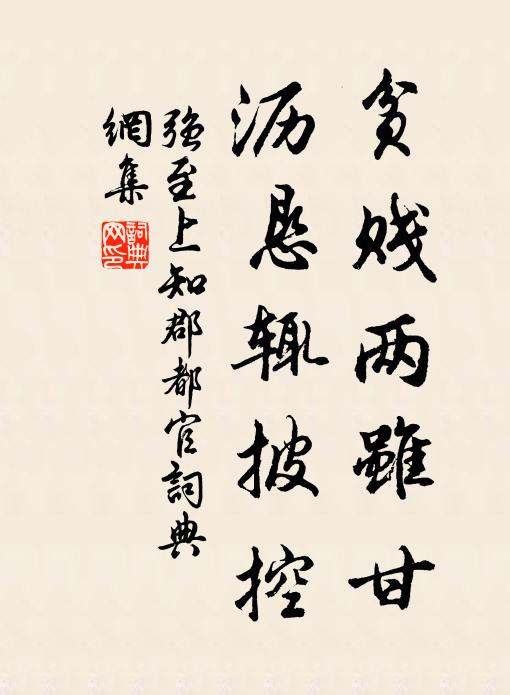 貧贱两雖甘
沥恳辄披控
强至上知郡都官詞典
網集
詞典網印